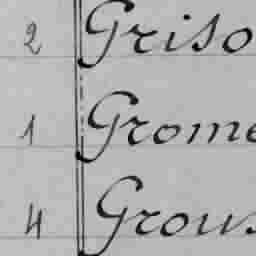 2 Griso
1 Grome
4 Grous